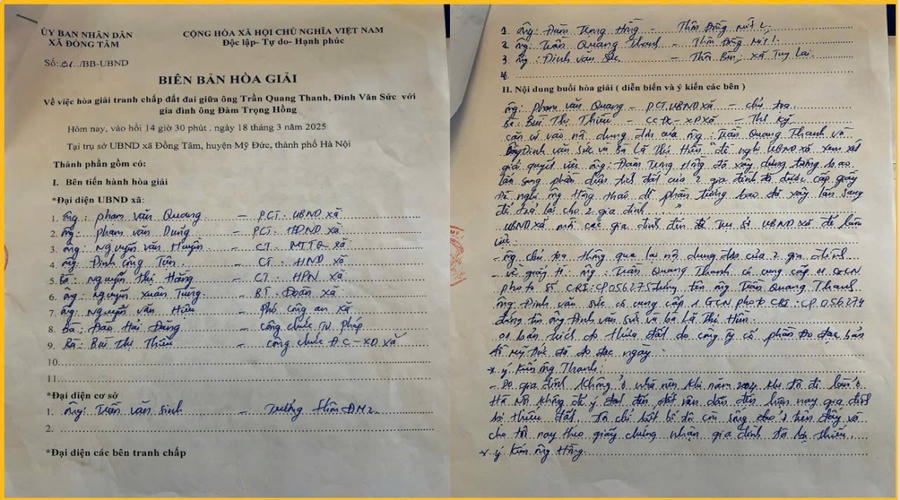 ỦY BAN NHÂN DÂN
XÃ ĐỒNG TÂM
Số: 01./BB-UBND
CỘNG HÒA XÃ HỘI CHỦ NGHĨA VIỆT NAM
Độc lập- Tự do- Hạnh phúc
BIÊN BẢN HÒA GIẢI
Về việc hòa giải tranh chấp đất đai giữa ông Trần Quang Thanh, Đinh Văn Sức với
gia đình ông Đàm Trọng Hồng
Hôm nay, vào hồi 14 giờ 30 phút, ngày 18 tháng 3 năm 2025
Tại trụ sở UBND xã Đồng Tâm, huyện Mỹ Đức, thành phố Hà Nội
Thành phần gồm có:
I. Bên tiến hành hòa giải
*Đại diện UBND xã:
1. ông: phạm văn Quang - PCT. UBND xã
2. ông: phạm văn Dũng - PCT. HĐND xã
3. ông: Nguyễn văn Huyện - CT. MTTQ xã
4. ông: Đinh công Tôn - CT. HND xã
5. Bà: Nguyễn thị Hằng - CT. HPN xã
6. ông: Nguyễn Xuân Tung - BT. Đoàn xã
7. ông: Nguyễn văn Hiếu - Phó công an xã
8. Bà: Đào Hải Đăng - công chức tư pháp
9. Bà: Bùi Thị Thiều - công chức ĐC-XD xã
10.
11.
*Đại diện cơ sở
1. ông: Trần văn Sinh - Trưởng thôn ĐM2
2.
*Đại diện các bên tranh chấp
1. ông: Đàm Trọng Hồng - Thôn Đồng Mít 2
2. ông: Trần Quang Thanh - Thôn Đồng Mít 2
3. ông: Đinh văn Sức - Thôn Bìn, xã Tuy Lai
4.
II. Nội dung buổi hòa giải ( diễn biến và ý kiến các bên )
ông: phạm văn Quang - PCT. UBND xã - chủ tọa
Bà: Bùi Thị Thiều - CCĐC-XD xã - Thư ký
căn cứ vào nội dung đơn của ông: Trần Quang Thanh và
ông Đinh văn Sức và Bà Lã Thị Hiền đề nghị UBND xã xem xét
giải quyết việc ông: Đàm Trọng Hồng đã xây dựng tường bao
lấn sang phần diện tích đất của 2 gia đình đã được cấp giấy
đề nghị ông Hồng tháo dỡ phần tường bao đã xây lấn sang
để trả lại cho 2 gia đình
UBND xã mời các gia đình đến trụ sở UBND xã để làm
việc.
- ông chủ tọa thông qua lại nội dung đơn của 2 gia đình
- về giấy tờ: ông: Trần Quang Thanh có cung cấp 1 GCN
photo số CBI: CP 056275 đứng tên ông Trần Quang Thanh
ông: Đinh văn Sức có cung cấp 1 GCN photo CBI: CP 056274
đứng tên ông Đinh văn Sức và bà Lã Thị Hiền.
01 bản trích đo thửa đất do công ty cổ phần Đo đạc bản
đồ Mỹ Đức đã đo đạc ngay.
* ý kiến ông Thanh:
- Do gia đình không ở nhà nên khi năm 2024 khi đó đi làm ở
Hà Nội không để ý đất đến, đất vẫn dần đến hiện nay gia đình
bị thiếu đất. Tôi chỉ
cho tới nay theo giấy chứng nhận gia đình tôi bị thiếu
* ý kiến ông Hồng